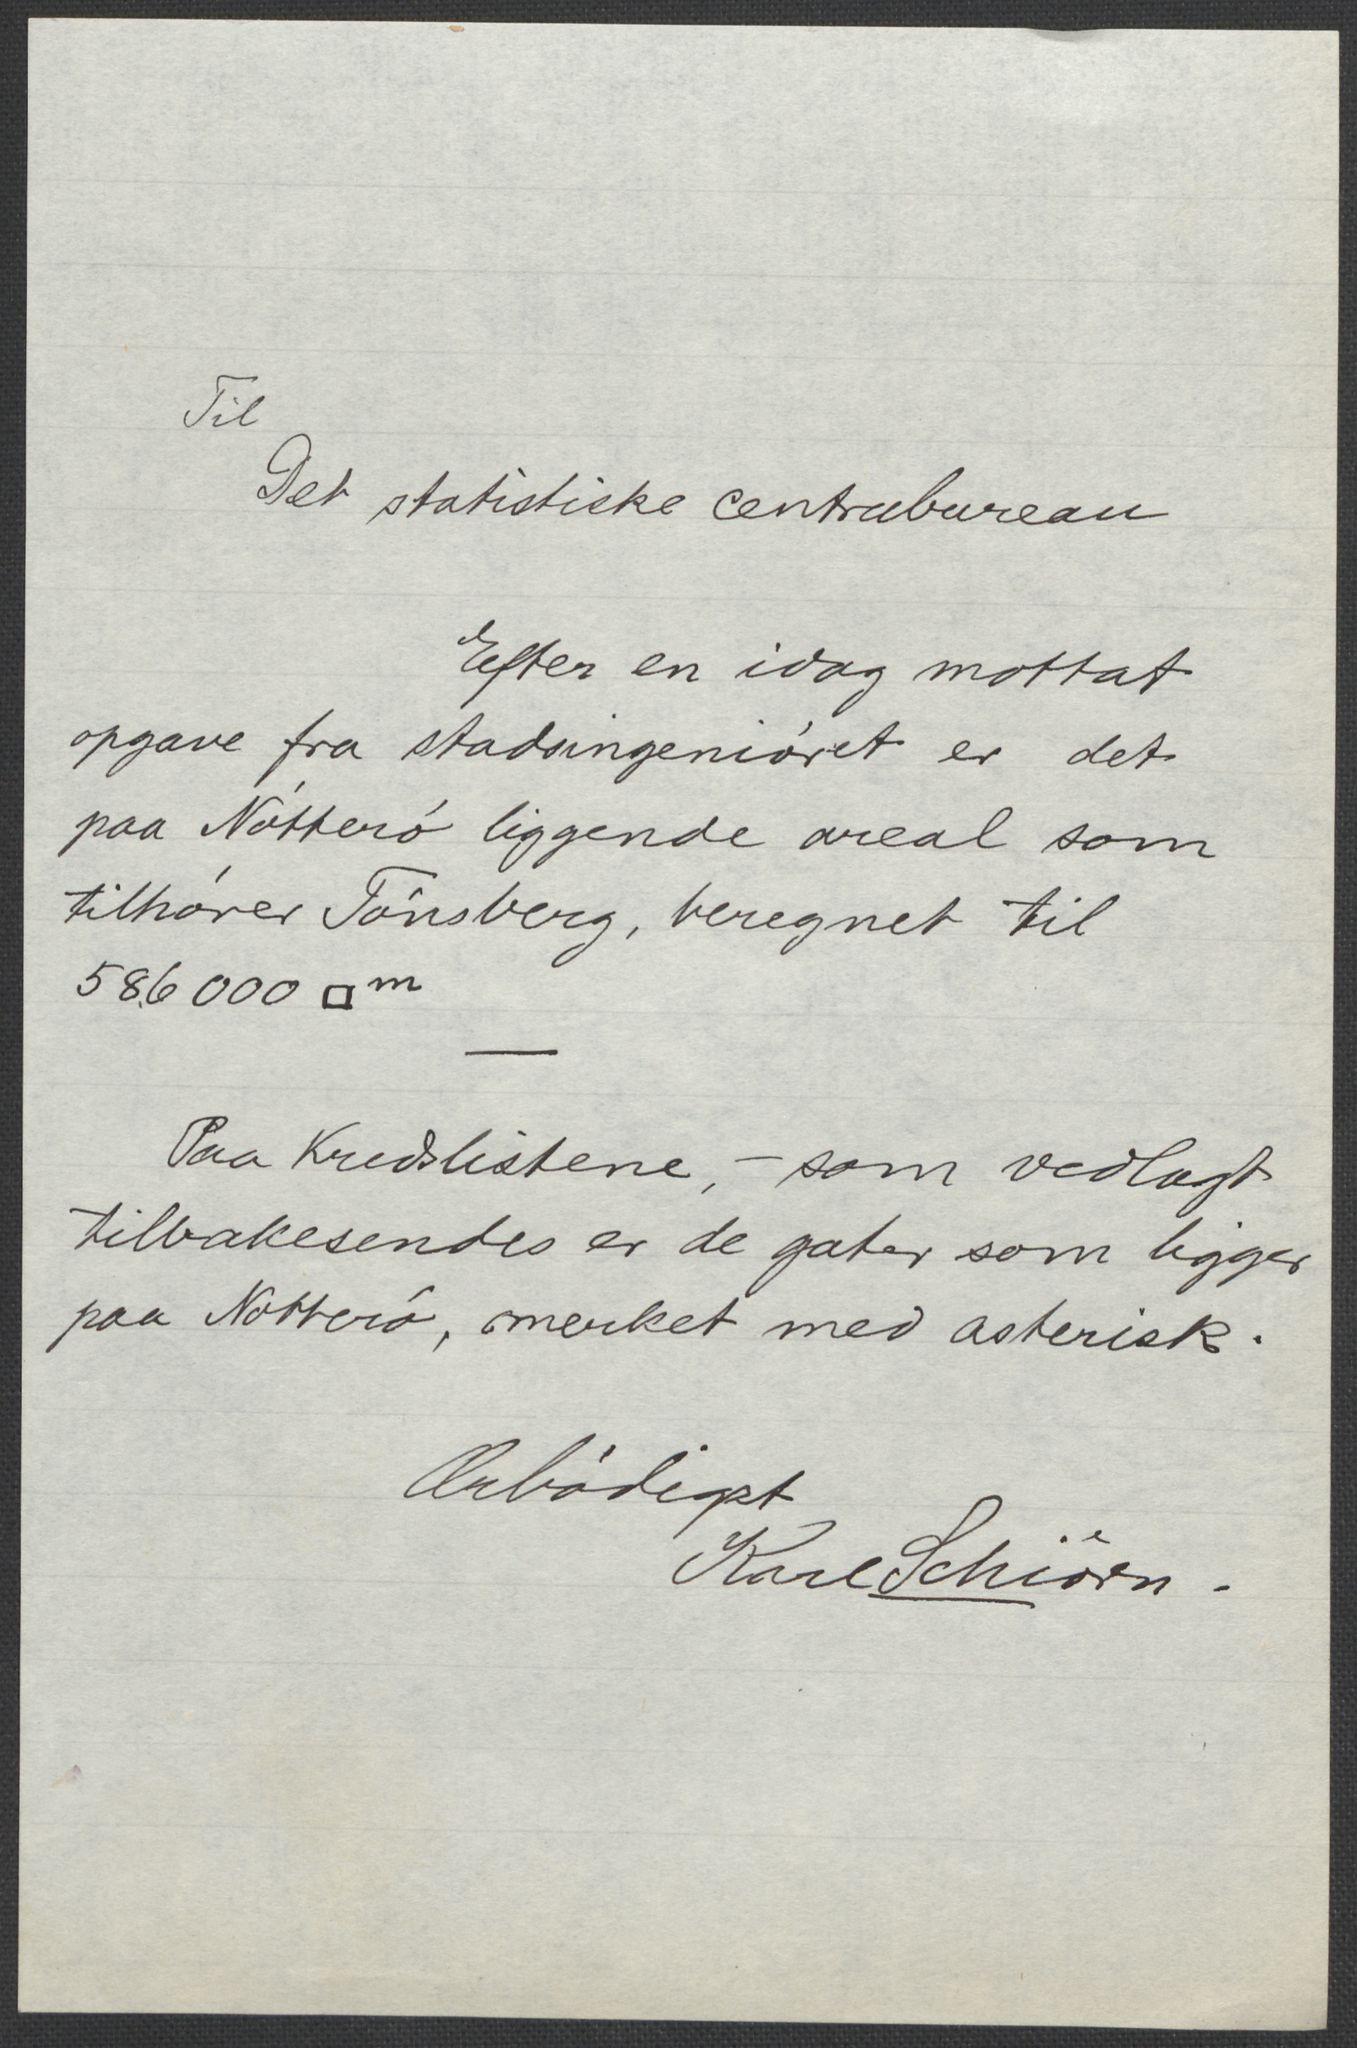 Til
Det statistiske centrubureau
Efter en idag mottat
opgave fra stadsingeniøret er det
paa Nøtterø liggende areal som
tilhører Tønsberg, beregnet til
586 000 □ m
Paa Kredslistene, – som vedlagt
tilbakesendes er de gater som ligger
paa Nøtterø, merket med asterisk.
Ærbødigst
Karl Schiørn.